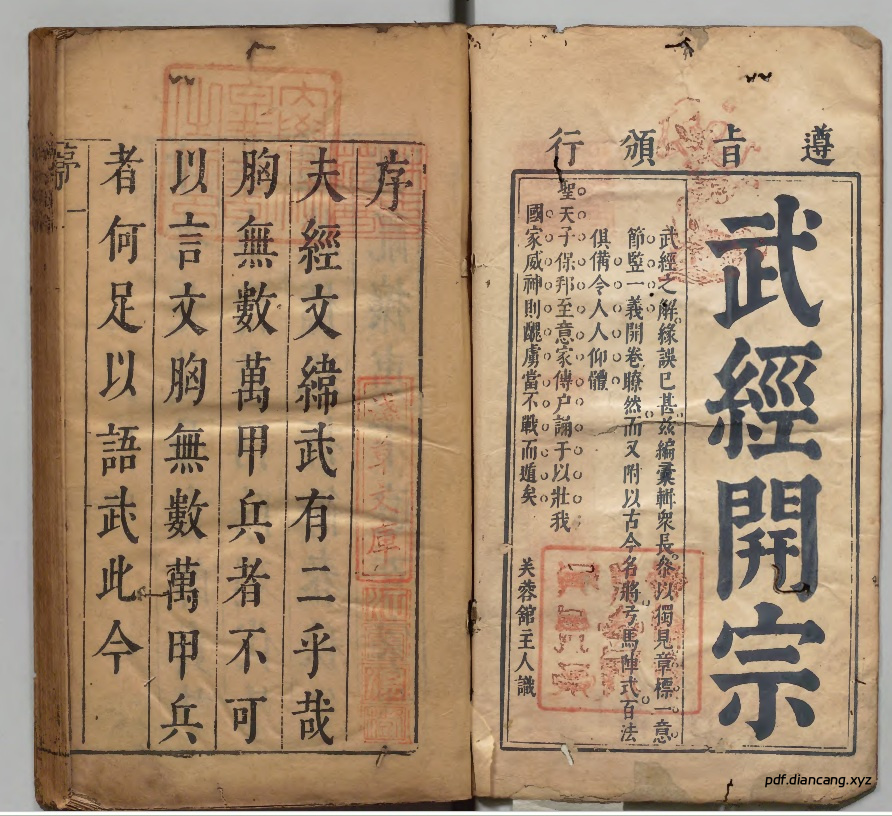 遵旨頒行
武經開宗
武經之解緣誤已甚茲編彙輯衆長參以獨見章標一意
節監一義開卷瞭然而又附以古今名將弓馬陣式百法
俱備令人人仰體
聖天子保邦至意家傳户誦于以壯我
國家威神則醜虜當不戰而遁矣
芙蓉舘主人識
序
夫經文緯武有二乎哉
胸無數萬甲兵者不可
以言文胸無數萬甲兵
者何足以語武此今
序
一
淺草文庫
pdf.diancang.xyz